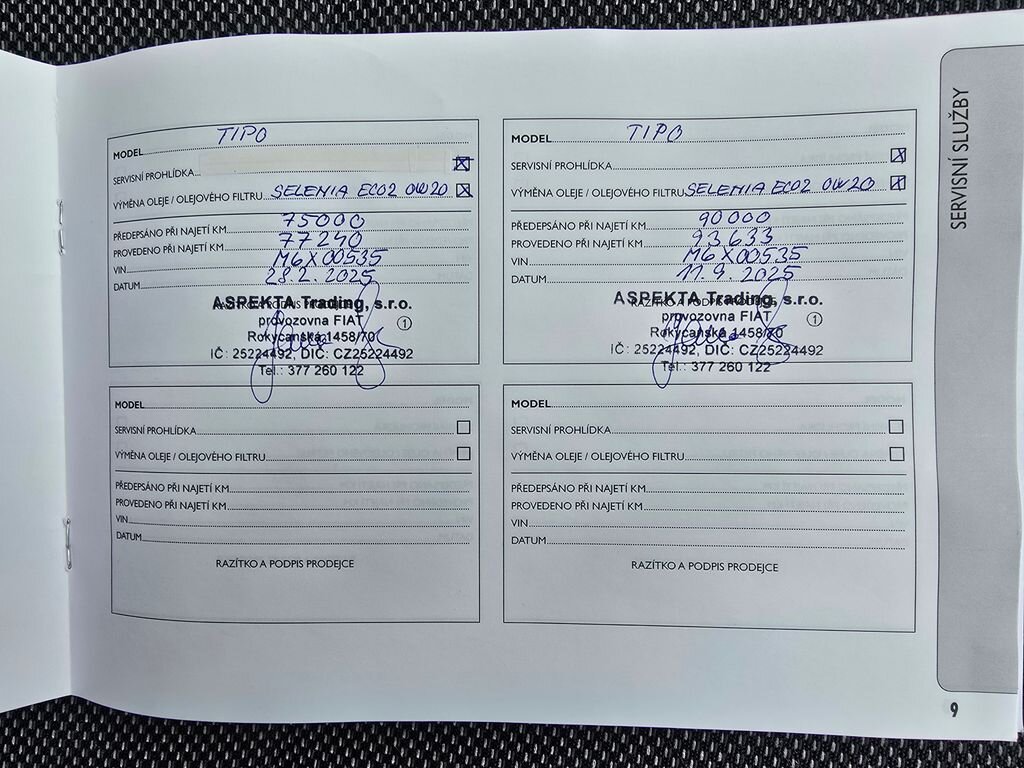 SERVISNÍ SLUŽBY
MODEL TIPO
SERVISNÍ PROHLÍDKA
VÝMĚNA OLEJE / OLEJOVÉHO FILTRU SELENIA ECO2 0W20
PŘEDEPSÁNO PŘI NAJETÍ KM 75000
PROVEDENO PŘI NAJETÍ KM 77240
VIN M6X00535
DATUM 28.2.2025
RAZÍTKO A PODPIS PRODEJCE
ASPEKTA Trading, s.r.o.
provozovna FIAT
1
Rokycanská 1458/70
IČ: 25224492, DIČ: CZ25224492
Tel.: 377 260 122
MODEL TIPO
SERVISNÍ PROHLÍDKA
VÝMĚNA OLEJE / OLEJOVÉHO FILTRU SELENIA ECO2 0W20
PŘEDEPSÁNO PŘI NAJETÍ KM 90000
PROVEDENO PŘI NAJETÍ KM 93633
VIN M6X00535
DATUM 11.9.2025
RAZÍTKO A PODPIS PRODEJCE
ASPEKTA Trading, s.r.o.
provozovna FIAT
1
Rokycanská 1458/70
IČ: 25224492, DIČ: CZ25224492
Tel.: 377 260 122
MODEL
SERVISNÍ PROHLÍDKA
VÝMĚNA OLEJE / OLEJOVÉHO FILTRU
PŘEDEPSÁNO PŘI NAJETÍ KM
PROVEDENO PŘI NAJETÍ KM
VIN
DATUM
RAZÍTKO A PODPIS PRODEJCE
MODEL
SERVISNÍ PROHLÍDKA
VÝMĚNA OLEJE / OLEJOVÉHO FILTRU
PŘEDEPSÁNO PŘI NAJETÍ KM
PROVEDENO PŘI NAJETÍ KM
VIN
DATUM
RAZÍTKO A PODPIS PRODEJCE
9